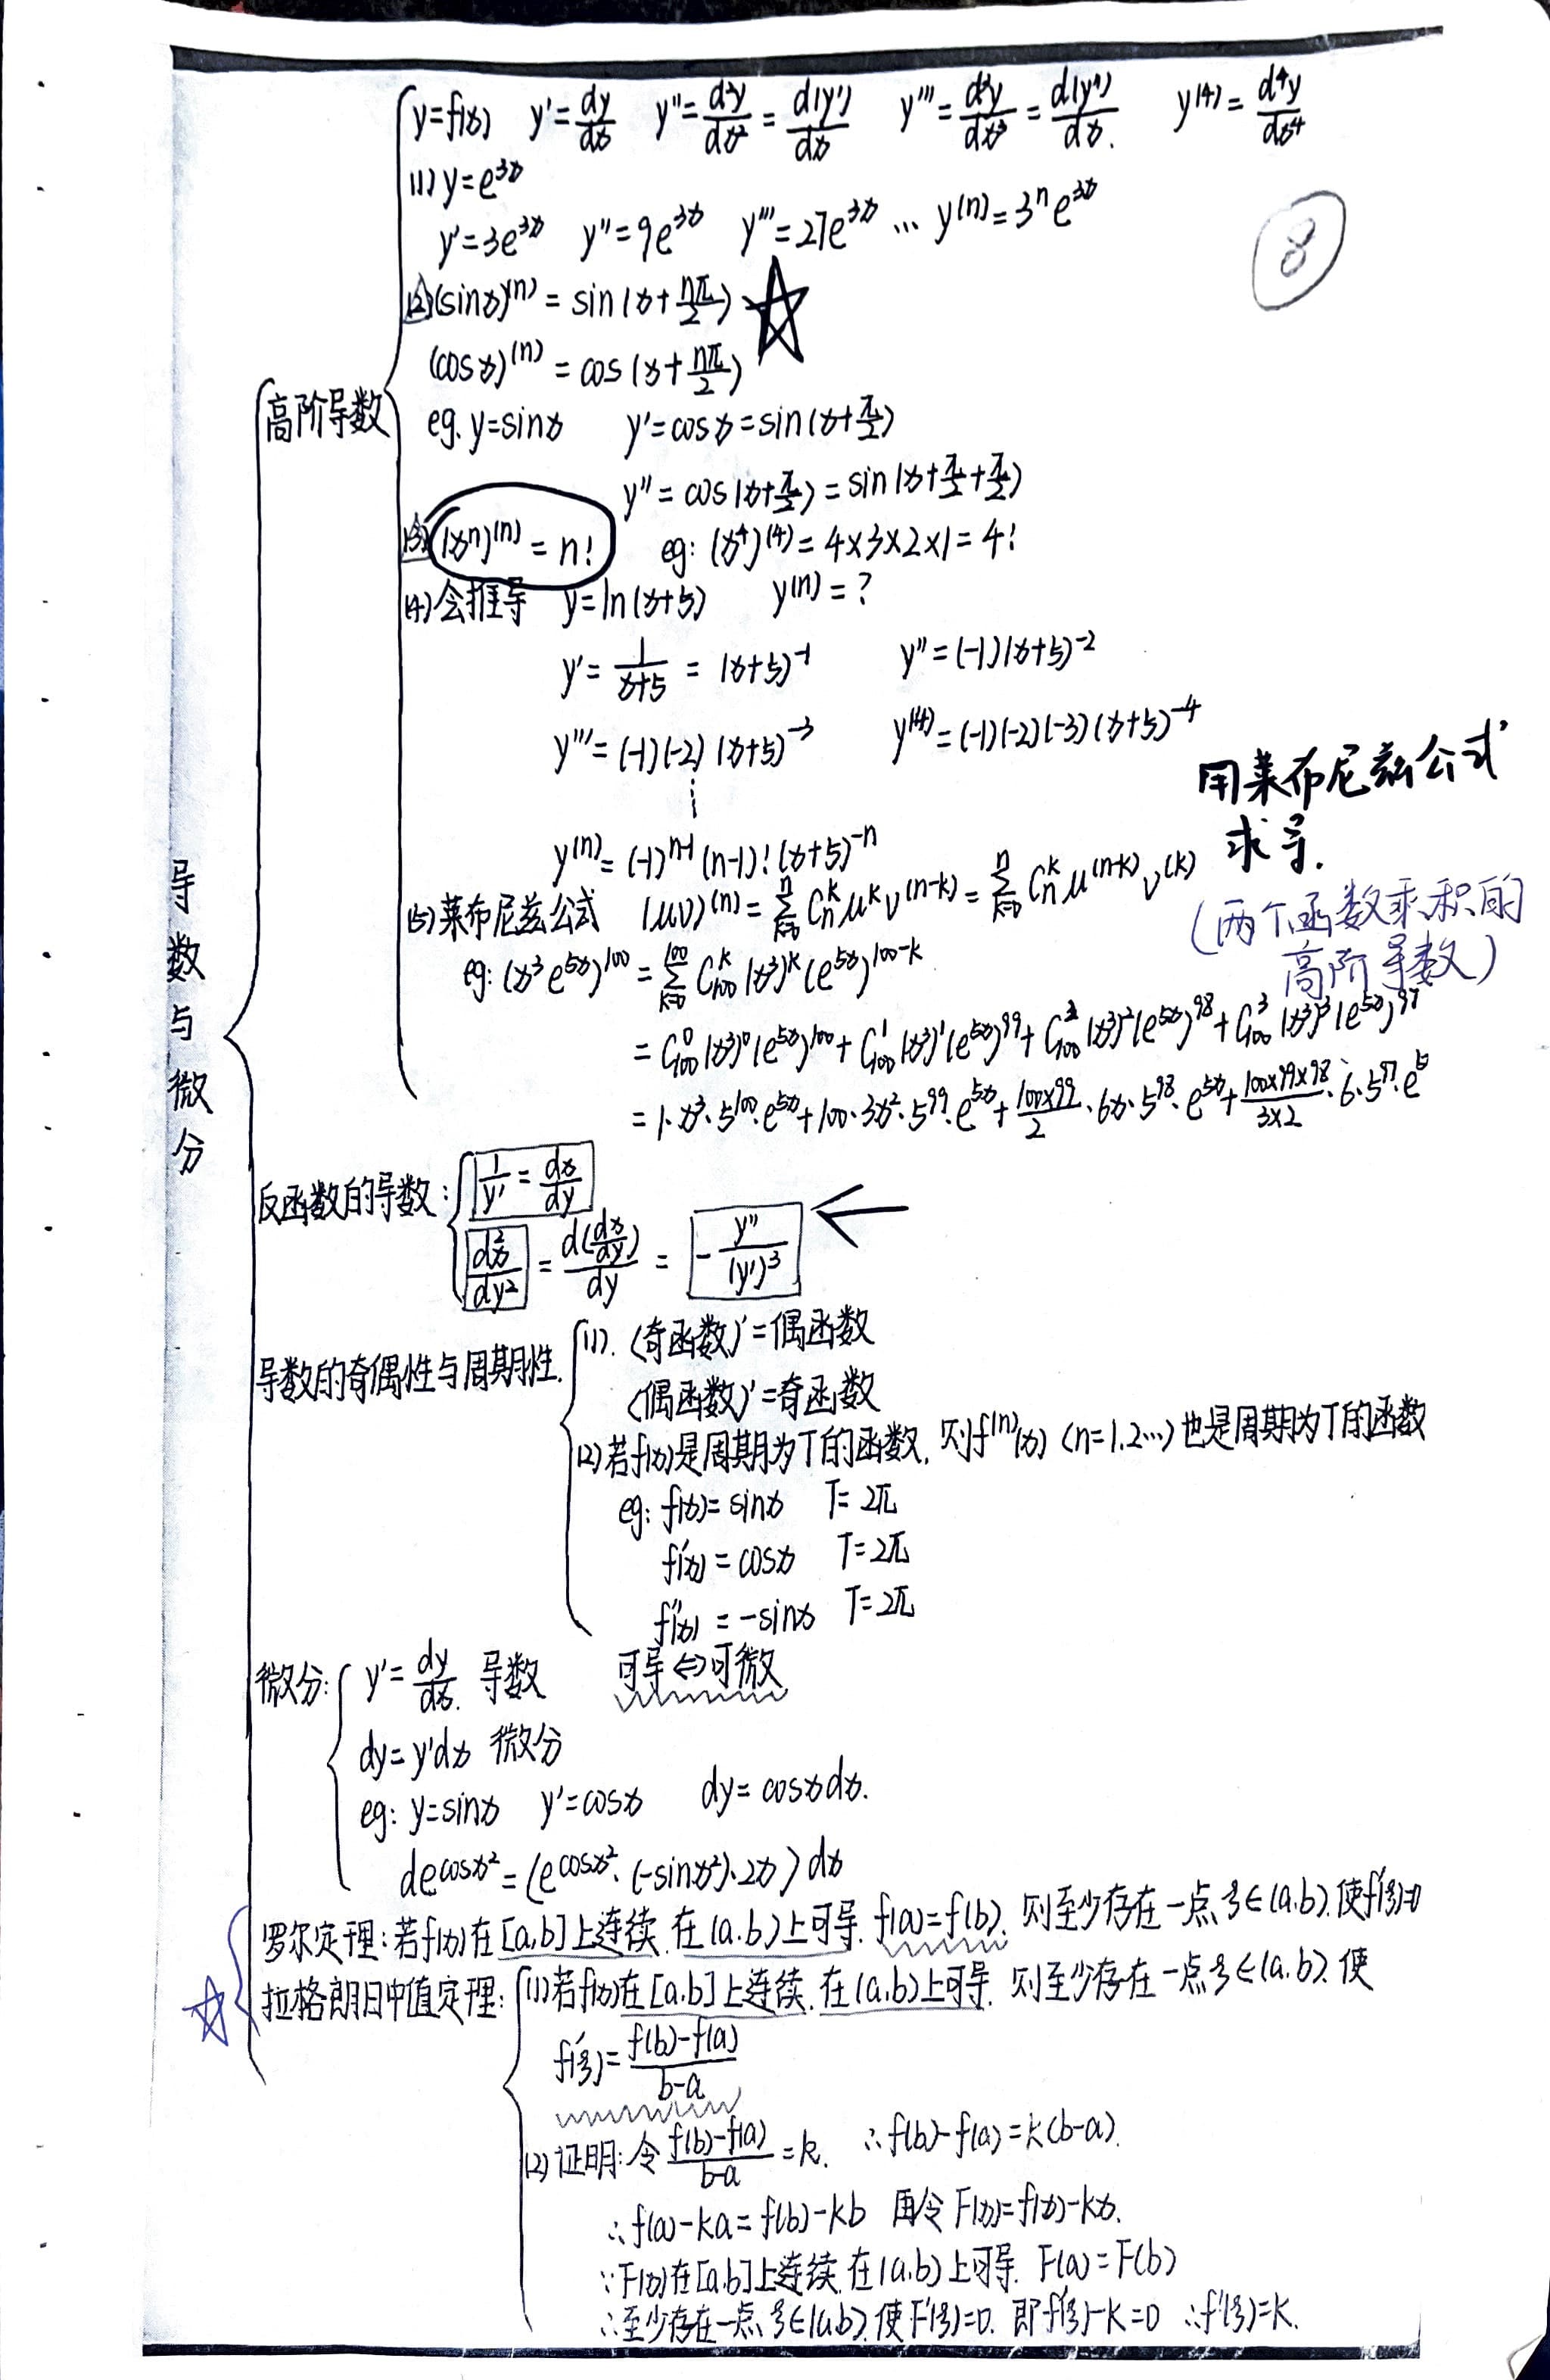 导数与微分
高阶导数
y=f(x) y'=dy/dx y''=d²y/dx²=d(y')/dx y'''=d³y/dx³=d(y'')/dx. y⁽⁴⁾=d⁴y/dx⁴
(1) y=e^{3x}
y'=3e^{3x} y''=9e^{3x} y'''=27e^{3x} … y^{(n)}=3^n e^{3x}
⑧
(2) (sinx)^{(n)}=sin(x+nπ/2) ☆
(cosx)^{(n)}=cos(x+nπ/2)
eg. y=sinx y'=cosx=sin(x+π/2)
y''=cos(x+π/2)=sin(x+π/2+π/2)
(3) (x^n)^{(n)}=n! eg: (x⁴)^{(4)}=4×3×2×1=4!
(4) 会推导 y=ln(x+5) y^{(n)}=?
y'=1/(x+5)=(x+5)^{-1} y''=(-1)(x+5)^{-2}
y'''=(-1)(-2)(x+5)^{-3} y^{(4)}=(-1)(-2)(-3)(x+5)^{-4}
⋮
y^{(n)}=(-1)^{n-1}(n-1)!(x+5)^{-n}
用莱布尼兹公式
求导.
(两个函数乘积的
高阶导数)
(5) 莱布尼兹公式 (μν)^{(n)}=∑_{k=0}^{n} C_n^k μ^k ν^{(n-k)}=∑_{k=0}^{n} C_n^k μ^{(n-k)} ν^{(k)}
eg: (x³e^{5x})^{100}=∑_{k=0}^{100} C_{100}^k (x³)^k (e^{5x})^{100-k}
=C_{100}^0 (x³)^0 (e^{5x})^{100}+C_{100}^1 (x³)^1 (e^{5x})^{99}+C_{100}^2 (x³)^2 (e^{5x})^{98}+C_{100}^3 (x³)^3 (e^{5x})^{97}
=1·x³·5^{100}·e^{5x}+100·3x²·5^{99}·e^{5x}+(100×99)/2·6x·5^{98}·e^{5x}+(100×99×98)/(3×2)·6·5^{97}·e^5
反函数的导数: 1/y'=dx/dy
d²x/dy²=d(dx/dy)/dy=-y''/(y')³ ←
导数的奇偶性与周期性.
(1). (奇函数)'=偶函数
(偶函数)'=奇函数
(2) 若f(x)是周期为T的函数, 则f^{(n)}(x) (n=1,2…)也是周期为T的函数
eg: f(x)=sinx T=2π
f'(x)=cosx T=2π
f''(x)=-sinx T=2π
微分: y'=dy/dx. 导数 可导⇔可微
dy=y'dx 微分
eg: y=sinx y'=cosx dy=cosxdx.
de^{cosx²}=(e^{cosx²}·(-sinx²)·2x)dx
罗尔定理:若f(x)在[a,b]上连续.在(a.b)上可导.f(a)=f(b).则至少存在一点ξ∈(a.b).使f'(ξ)=0
☆ 拉格朗日中值定理: (1)若f(x)在[a.b]上连续.在(a.b)上可导. 则至少存在一点ξ∈(a.b).使
f'(ξ)=(f(b)-f(a))/(b-a)
(2)证明:令(f(b)-f(a))/(b-a)=k. ∴f(b)-f(a)=k(b-a).
∴f(a)-ka=f(b)-kb 再令F(x)=f(x)-kx.
∵F(x)在[a.b]上连续.在(a.b)上可导. F(a)=F(b)
∴至少存在一点ξ∈(a.b).使F'(ξ)=0. 即f'(ξ)-k=0 ∴f'(ξ)=k.